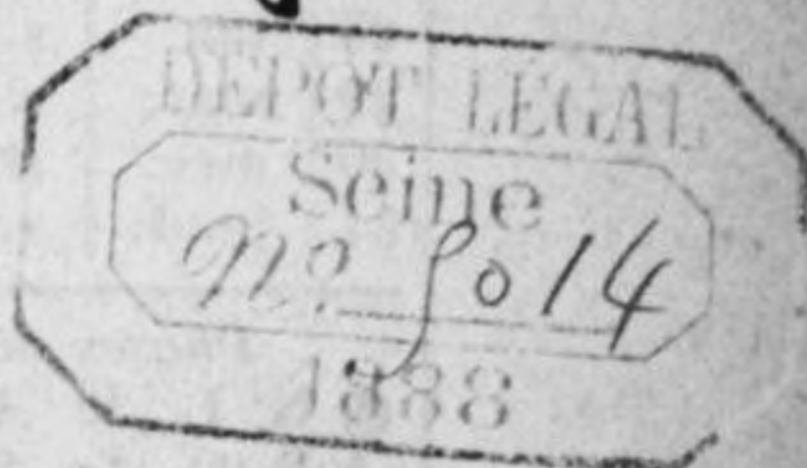 DEPOT LEGAL
Seine
No. 5014
1888